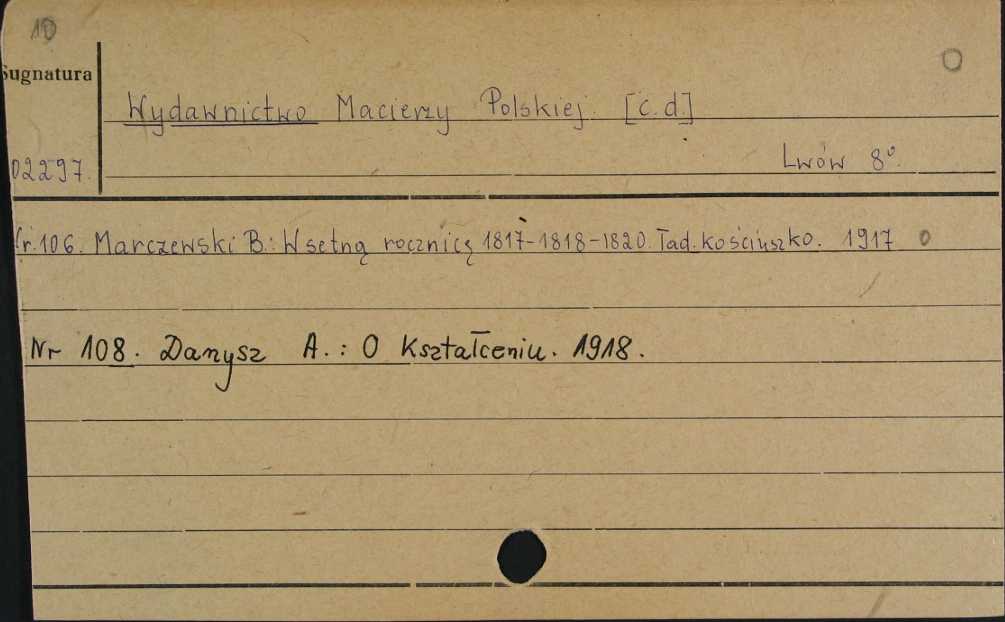 10
Sygnatura
Wydawnictwo Macierzy Polskiej. [c.d.]
02297.
Lwów 8°.
Nr. 106. Marczewski B.: W setną rocznicę 1817-1818-1820. Tad. Kościuszko. 1917 0
Nr 108. Danysz A.: O Kształceniu. 1918.